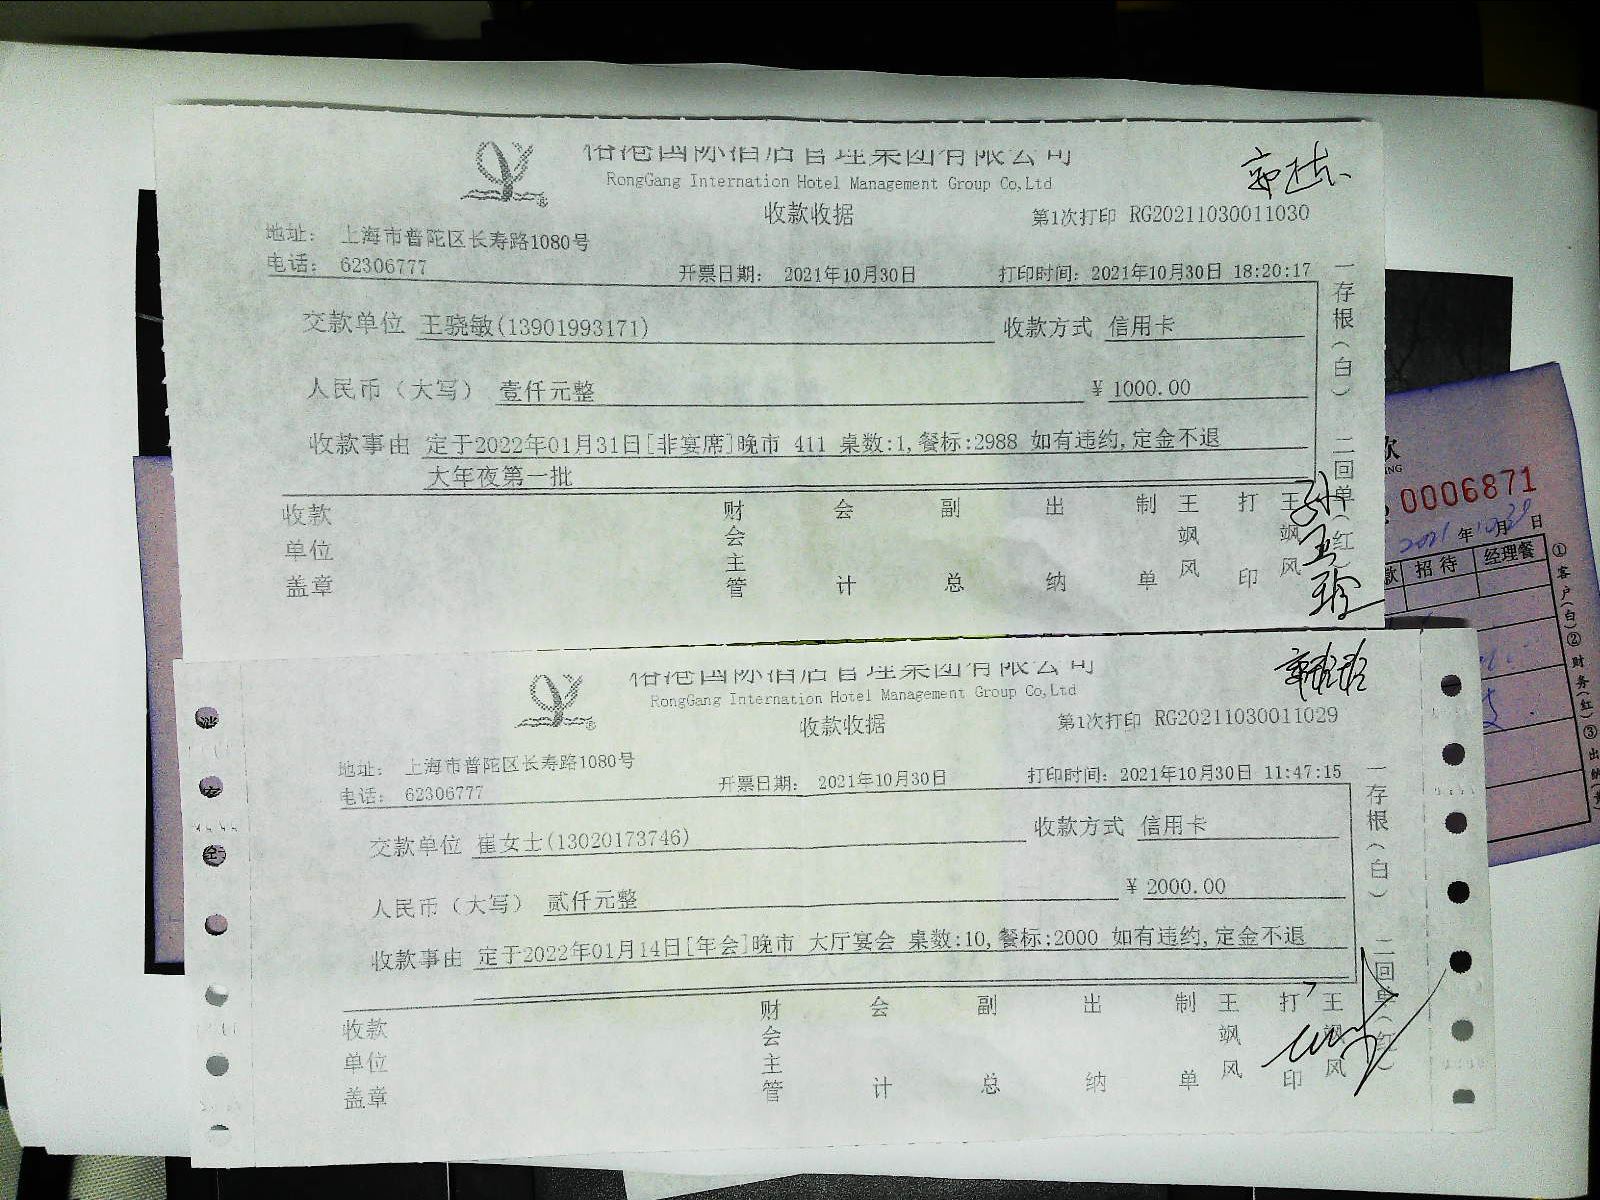 国际酒店管理集团有限公司
RongGang Internation Hotel Management Group Co,Ltd
收款收据
第1次打印 RG20211030011030
地址: 上海市普陀区长寿路1080号
电话: 62306777
开票日期: 2021年10月30日
打印时间: 2021年10月30日 18:20:17
交款单位 王骁敏(13901993171)
收款方式 信用卡
人民币(大写) 壹仟元整
¥ 1000.00
收款事由 定于2022年01月31日[非宴席]晚市 411 桌数:1,餐标:2988 如有违约,定金不退
大年夜第一批
收款单位盖章
财会主管
会计
副总
出纳
制单
王飒风
打印
王飒风
一存根(白) 二回单(红)
国际酒店管理集团有限公司
RongGang Internation Hotel Management Group Co,Ltd
收款收据
第1次打印 RG20211030011029
地址: 上海市普陀区长寿路1080号
电话: 62306777
开票日期: 2021年10月30日
打印时间: 2021年10月30日 11:47:15
交款单位 崔女士(13020173746)
收款方式 信用卡
人民币(大写) 贰仟元整
¥ 2000.00
收款事由 定于2022年01月14日[年会]晚市 大厅宴会 桌数:10,餐标:2000 如有违约,定金不退
收款单位盖章
财会主管
会计
副总
出纳
制单
王飒风
打印
王飒风
一存根(白) 二回单(红)
0006871
2021年10月 日
招待
经理餐
①客户(白)②财务(红)③出纳